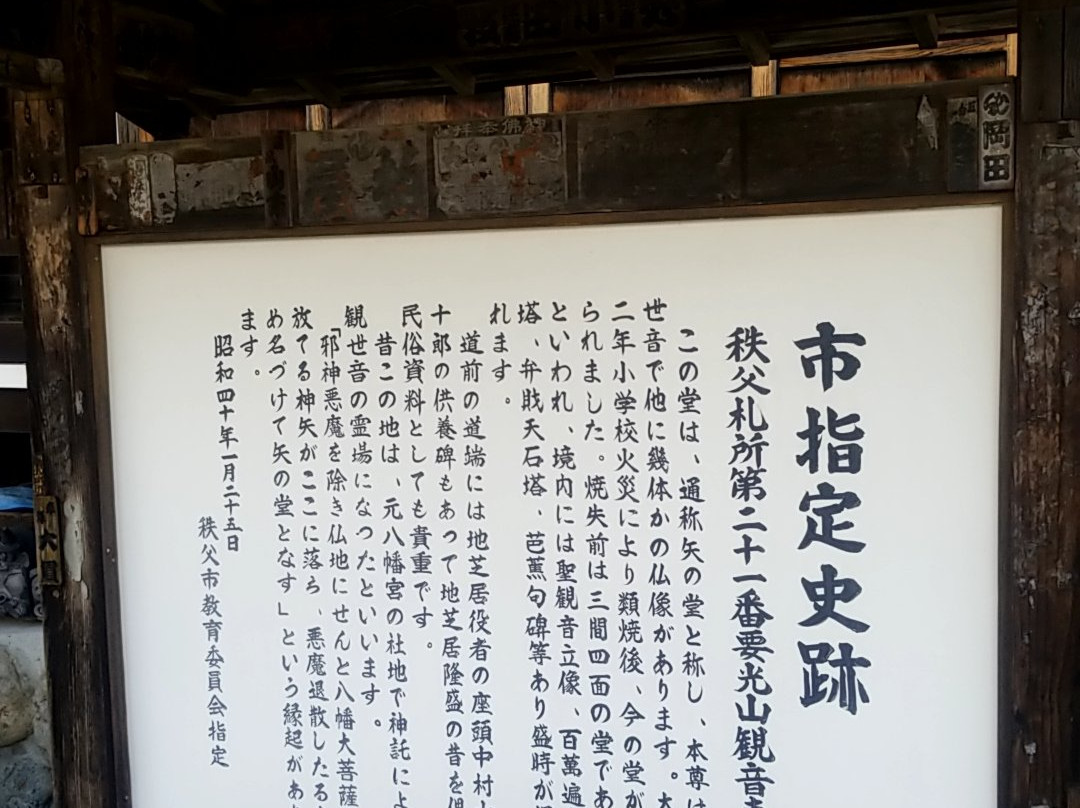 市指定史跡
秩父札所第二十一番要光山観音
この堂は、通称矢の堂と称し、本尊は
世音で他に幾体かの仏像があります。大
二年小学校火災により類焼後、今の堂が
られました。焼失前は三間四面の堂であ
といわれ、境内には聖観音立像、百萬遍
塔、弁財天石塔、芭蕉句碑等あり盛時が
れます。
道前の道端には地芝居役者の座頭中村
十郎の供養碑もあって地芝居隆盛の昔を
民俗資料としても貴重です。
昔この地は、元八幡宮の社地で神託によ
観世音の霊場になったといいます。
「邪神悪魔を除き仏地にせんと八幡大菩薩
放てる神矢がここに落ち、悪魔退散したる
め名づけて矢の堂となす」という縁起があ
ます。
昭和四十年一月二十五日
秩父市教育委員会指定
岡田